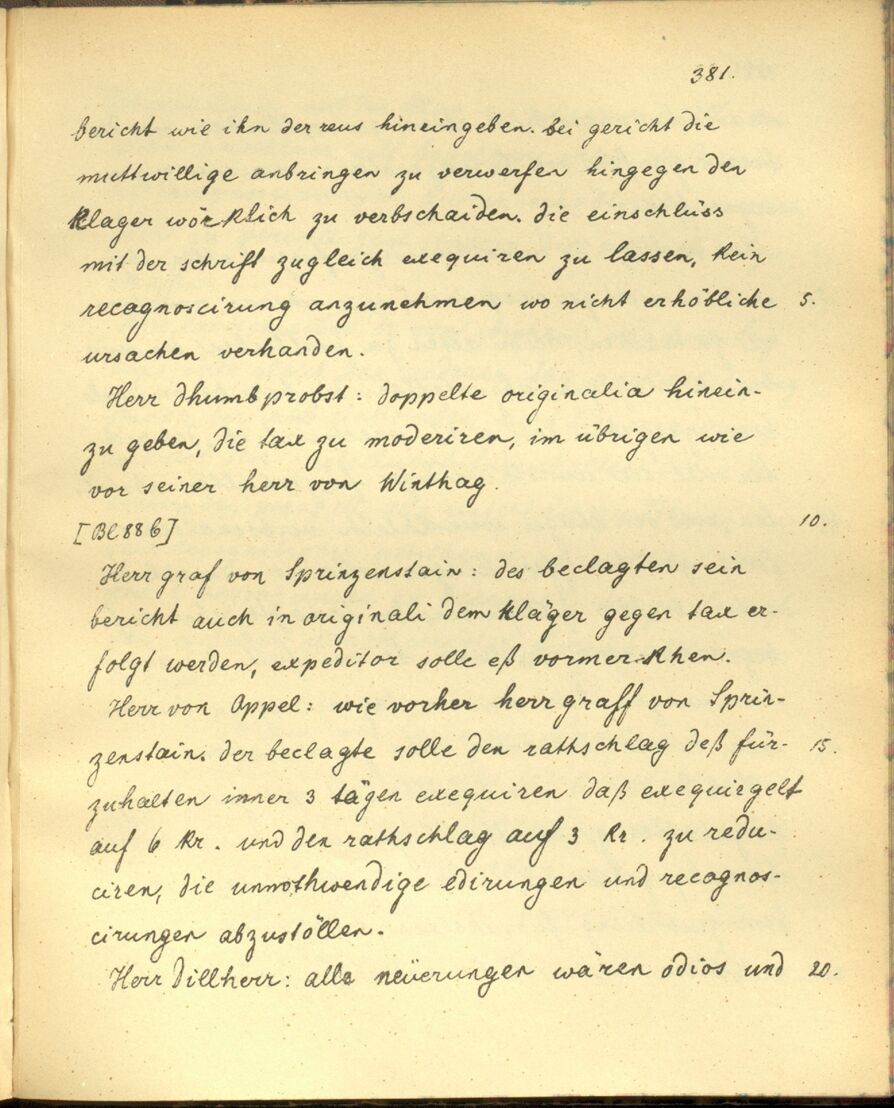 381.
bericht wie ihn der reus hineingeben. bei gericht die
muttwillige anbringen zu verwerfen hingegen den
klager wörklich zu verbschaiden. die einschlüss
mit der schrift zugleich exequiren zu lassen, kein
recagnoscirung anzunehmen wo nicht erhöbliche 5.
ursachen verhanden.
Herr dhumbprobst: doppelte originalia hinein-
zu geben, die tax zu moderiren, im übrigen wie
vor seiner herr von Winthag.
[Bl 88 b] 10.
Herr graf von Sprinzenstain: des beclagten sein
bericht auch in originali dem kläger gegen tax er-
folgt werden, expeditor solle eß vormerkhen.
Herr von Oppel: wie vorher herr graff von Sprin-
zenstain. der beclagte solle den rathschlag deß für- 15.
zuhalten inner 3 tägen exequiren daß exequiergelt
auf 6 Kr. und den rathschlag auf 3 Kr. zu redu-
ciren, die unnothwendige edirungen und recagnos-
cirungen abzustöllen.
Herr Dillherr: alle neüerungen wären odios und 20.